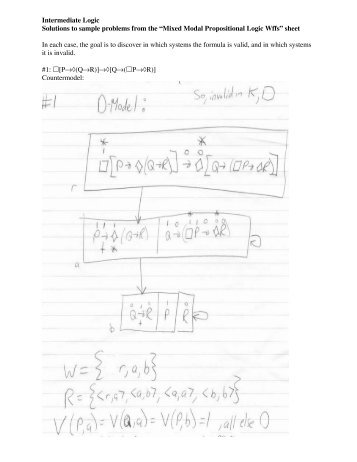 Intermediate Logic
Solutions to sample problems from the “Mixed Modal Propositional Logic Wffs” sheet
In each case, the goal is to discover in which systems the formula is valid, and in which systems
it is invalid.
#1: □[P→◊(Q→R)]→◊[Q→(□P→◊R)]
Countermodel:
#1 D-Model: So, invalid in K, D
* *
1 0 0
□[P→◊(Q→R)]→◊[Q→(□P→◊R)]
r
*
1 1 1 1 0 1 0 0
P→◊(Q→R) Q→(□P→◊R)
+ *
a
0 1 0 1 0
Q→R P R
+
b
W = { r, a, b }
R = {<r,a>, <a,b>, <a,a>, <b,b>}
V(P,a) = V(Q,a) = V(P,b) = 1, all else 0